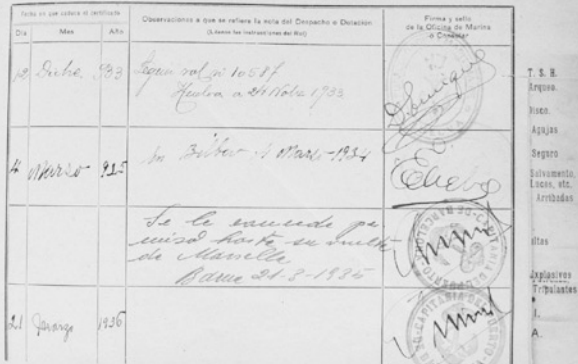 Fecha en que caduca el certificado
Observaciones a que se refiere la nota del Despacho o Dotación
(Léanse las instrucciones del Rol)
Firma y sello
de la Oficina de Marina
o Consular
Día Mes Año
12 Dicbre 933
Según rol nº 10587
Huelva a 24 Nobre 1933
4 Marzo 935
En Bilbao 4 Marzo-1934
Se le concede per
miso hasta su vuelta
de Marsella
Bama 21-3-1935
21 Marzo 1936
T. S. H.
Arqueo.
Disco.
Agujas
Seguro
Salvamento,
Luces, etc.
Arribadas
Explosivos
Tripulantes
I.
A.